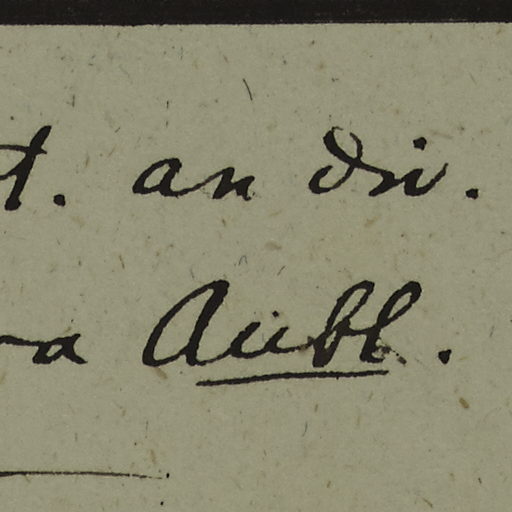 t. an div.
a Aubl.